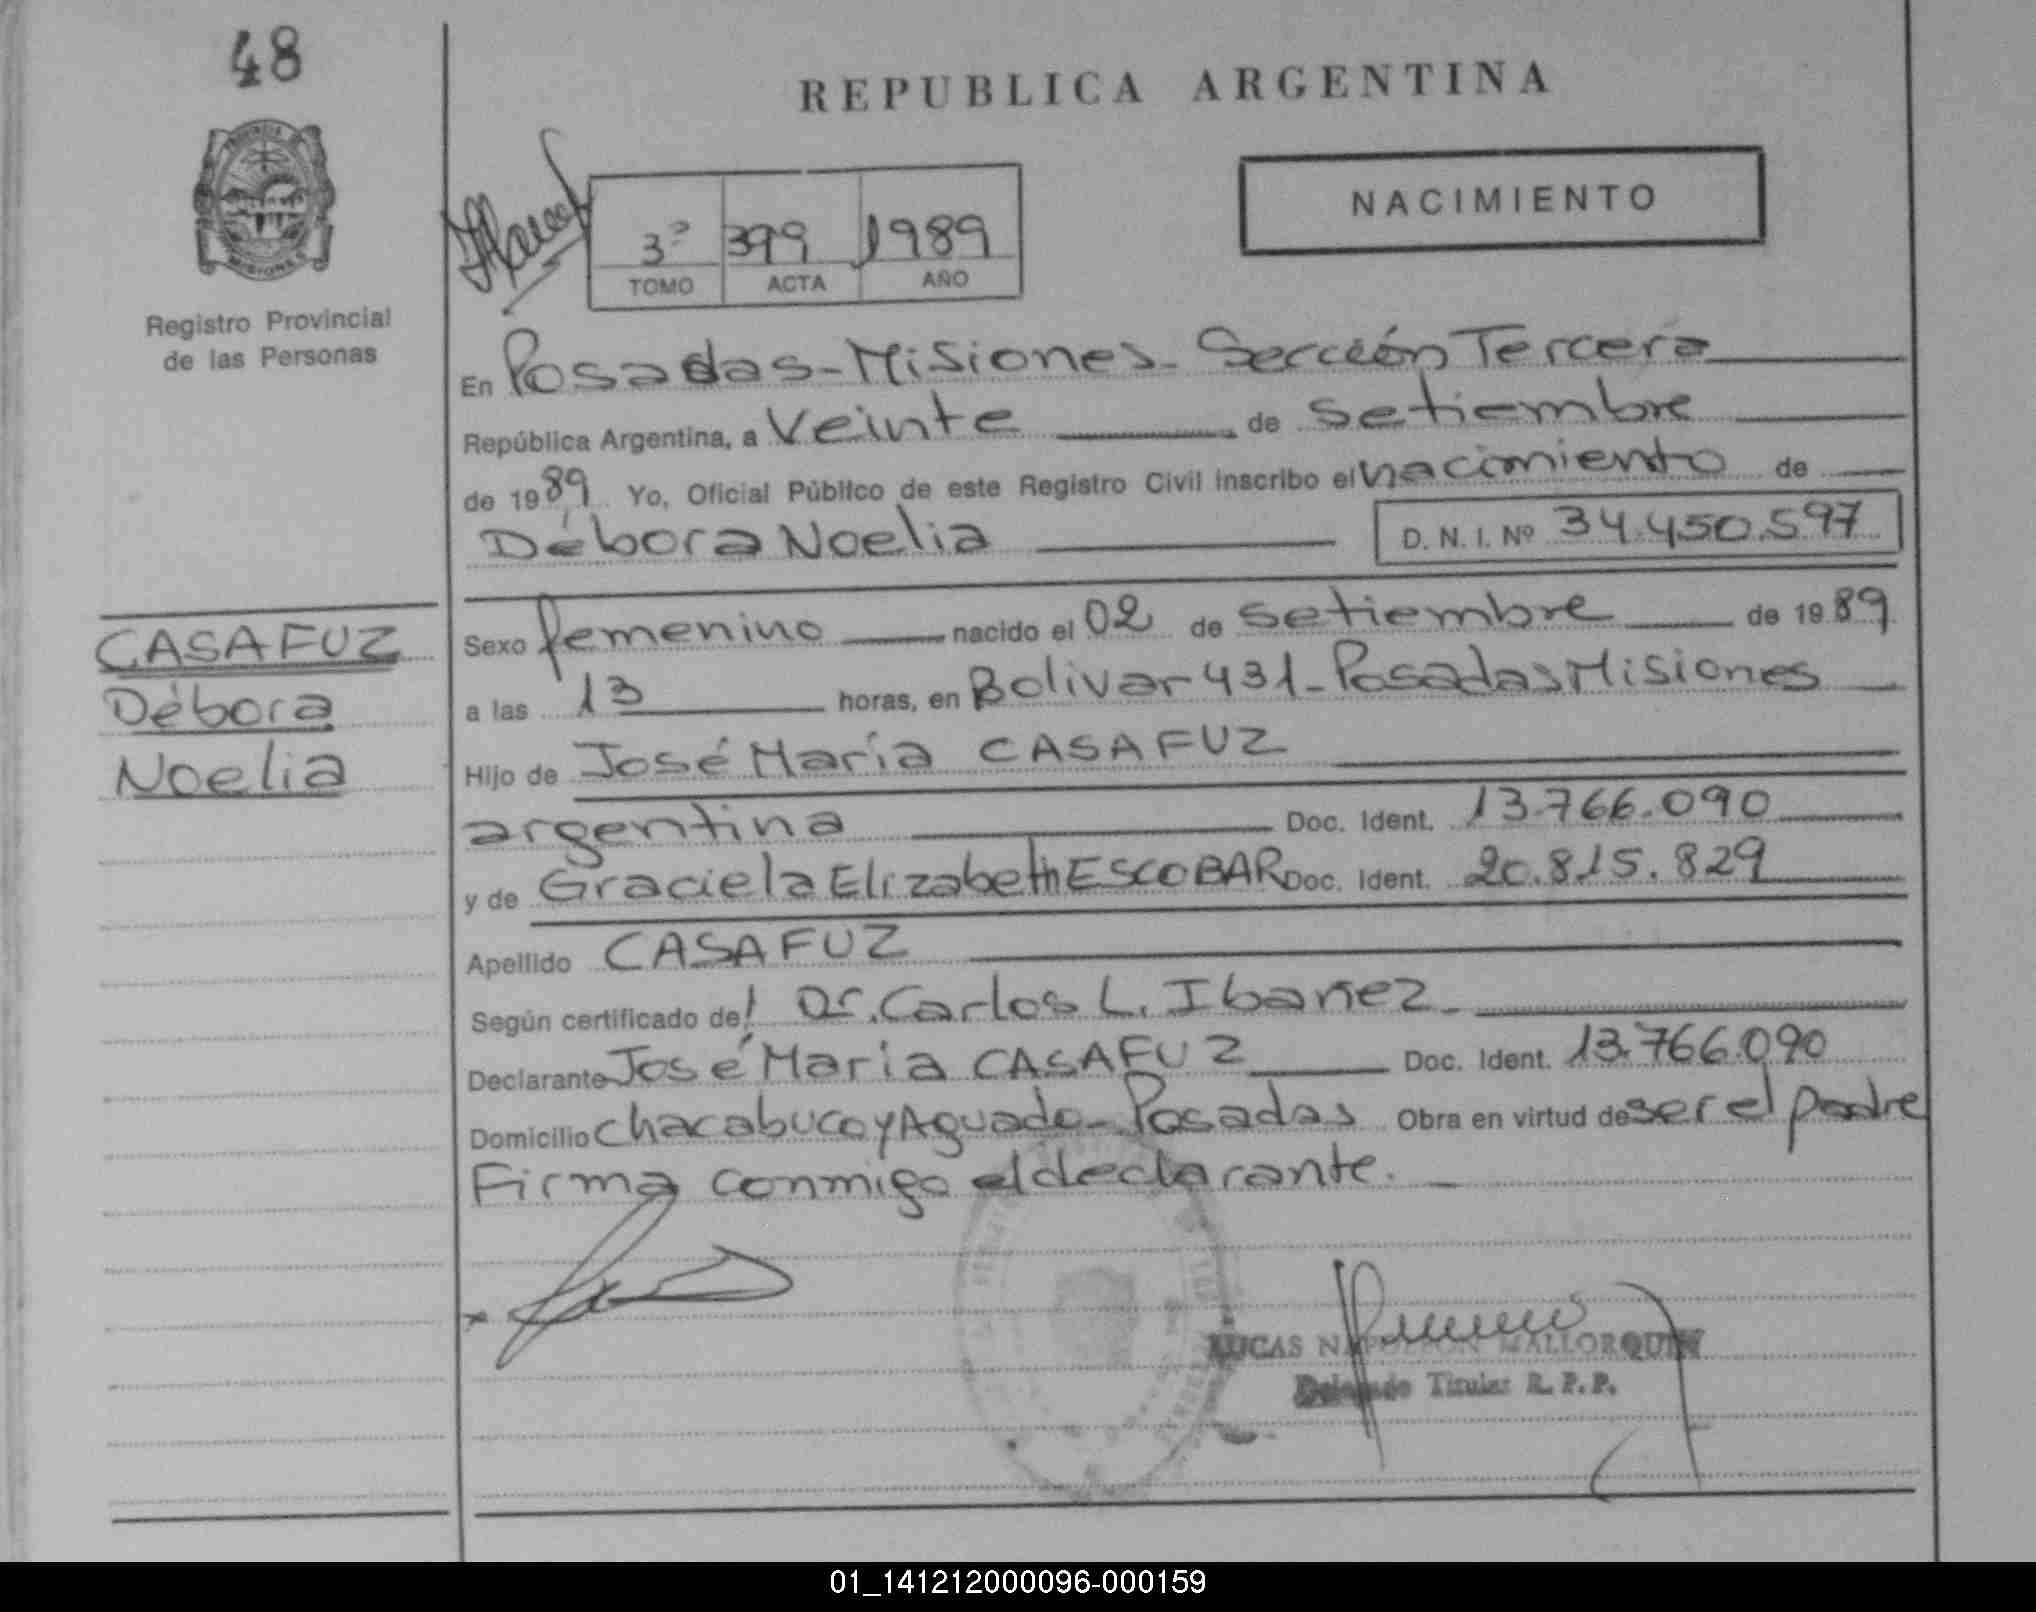 48
REPUBLICA ARGENTINA
MISIONES
Registro Provincial
de las Personas
3º 399 1989
TOMO ACTA AÑO
NACIMIENTO
En Posadas-Misiones- Sección Tercera
República Argentina, a Veinte de setiembre
de 1989 Yo, Oficial Público de este Registro Civil inscribo el nacimiento de
Débora Noelia D. N. I. Nº 34.450.597
CASAFUZ
Débora
Noelia
Sexo femenino nacido el 02 de setiembre de 1989
a las 13 horas, en Bolivar 431-Posadas Misiones
Hijo de José María CASAFUZ
argentina Doc. Ident. 13.766.090
y de Graciela Elizabeth ESCOBAR Doc. Ident. 20.815.829
Apellido CASAFUZ
Según certificado del Dr. Carlos L. Ibañez
Declarante José Maria CASAFUZ Doc. Ident. 13.766.090
Domicilio Chacabuco y Aguado-Posadas Obra en virtud de ser el padre
Firma conmigo el declarante.
LUCAS NAPOLEON MALLORQUIN
Delegado Titular R. P. P.
01_141212000096-000159